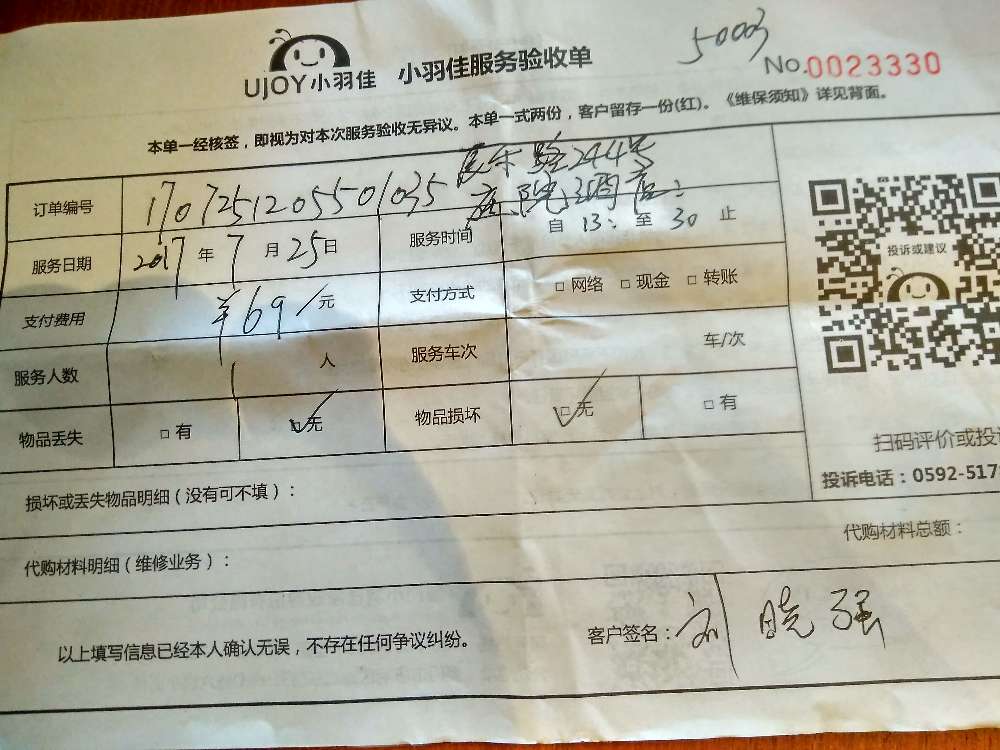 5003
UjOY小羽佳 小羽佳服务验收单
No.0023330
本单一经核签，即视为对本次服务验收无异议。本单一式两份，客户留存一份(红)。《维保须知》详见背面。
订单编号 1707251205501035 244号
服务日期 2017 年 7 月 25 日 服务时间 自 13: 至 30 止
支付费用 ¥69/元 支付方式 □ 网络 □ 现金 □ 转账
服务人数 1 人 服务车次 车/次
物品丢失 □ 有 □ 无 物品损坏 □ 无 □ 有
投诉或建议
扫码评价或投
投诉电话：0592-517
损坏或丢失物品明细（没有可不填）：
代购材料明细（维修业务）： 代购材料总额：
以上填写信息已经本人确认无误，不存在任何争议纠纷。 客户签名：刘晓强